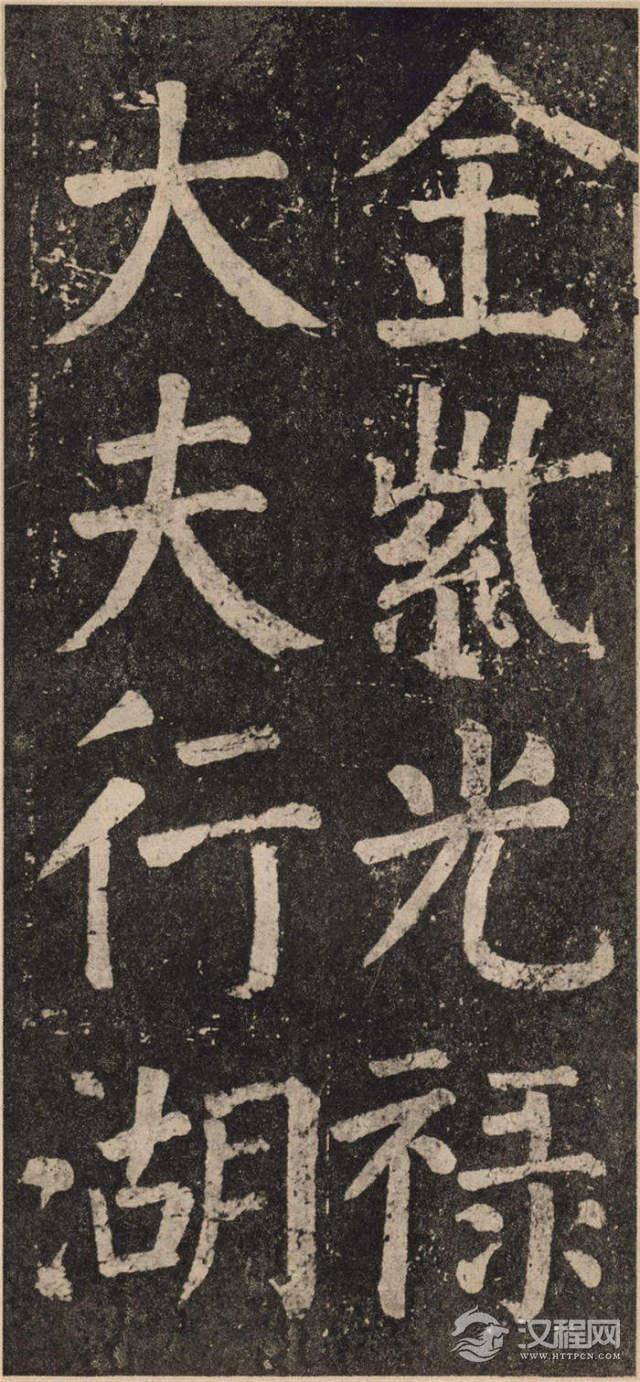 金紫光禄
大夫行湖
汉程网
WWW.HTTPCN.COM